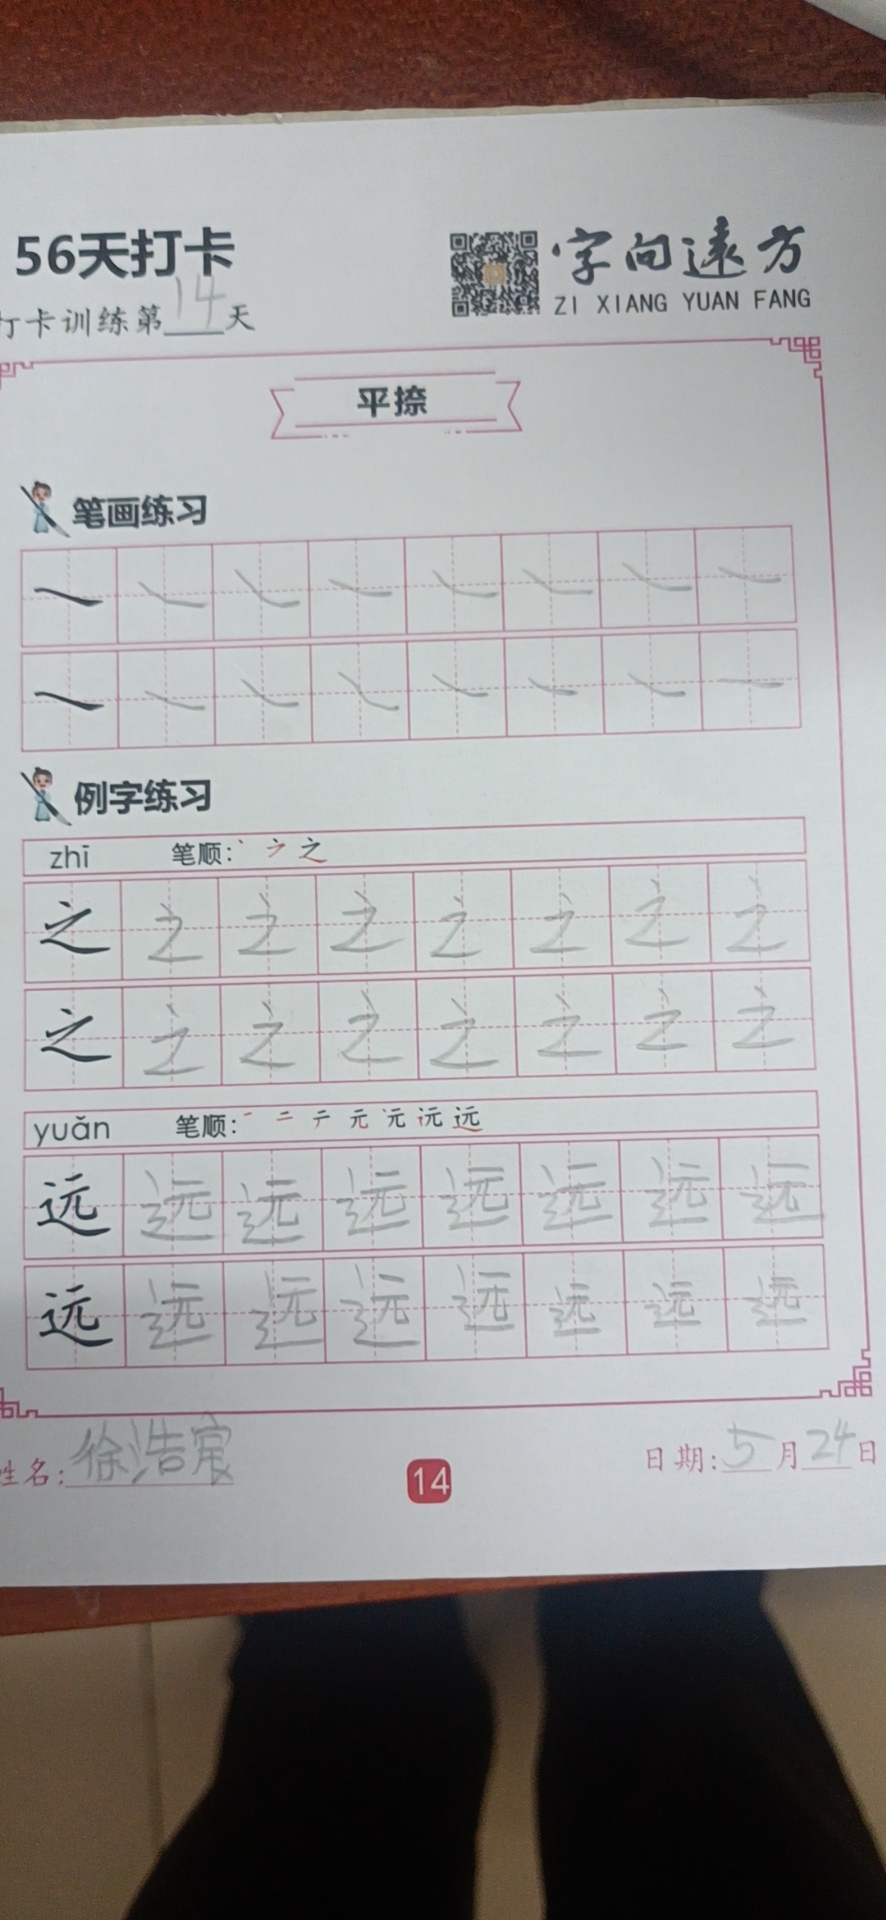 56天打卡
字向远方
ZI XIANG YUAN FANG
打卡训练第14天
平捺
笔画练习
例字练习
zhī 笔顺: 丶 ㇇ 之
之 之 之 之 之 之 之 之
之 之 之 之 之 之 之 之
yuǎn 笔顺: 一 二 テ 元 远
远 远 远 远 远 远 远 远
远 远 远 远 远 远 远 远
姓名: 徐浩宸
14
日期: 5月24日